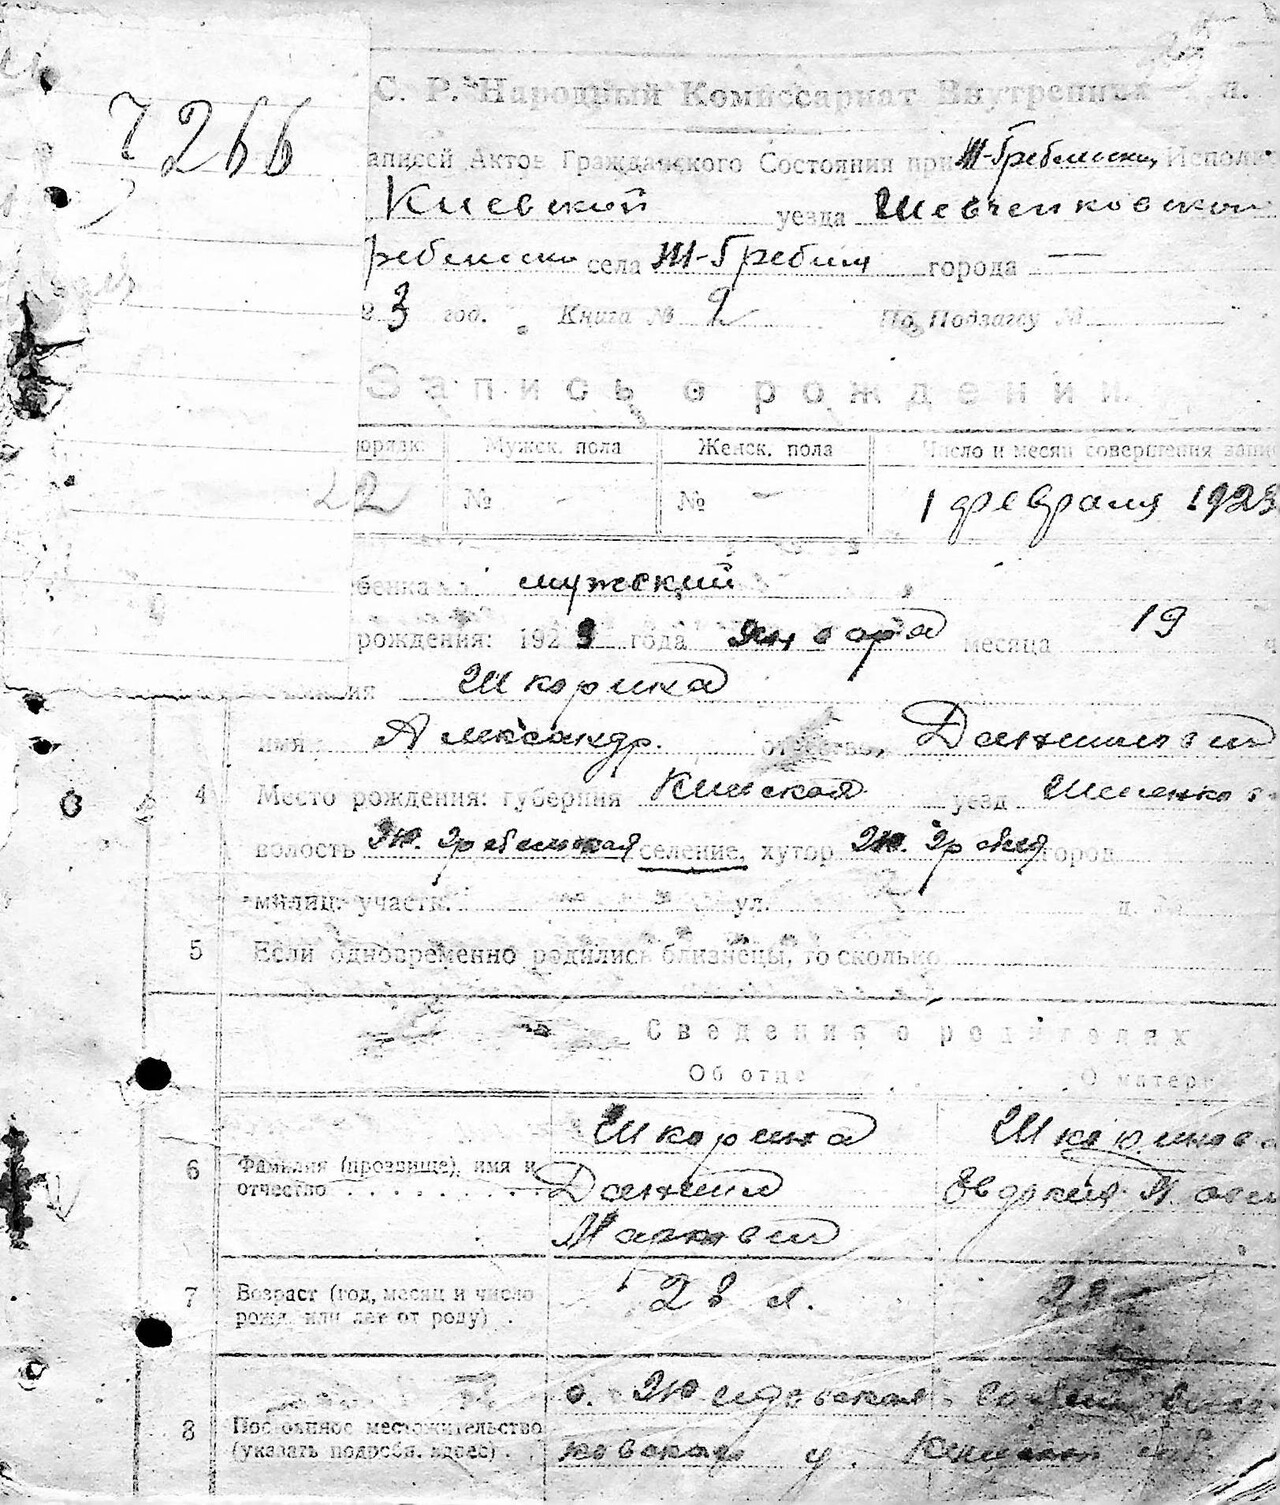 7266
С. Р. Народный Комиссариат Внутренних
аписей Актов Гражданского Состояния при Ж-Гребельском Исполк
Киевской уезда Шевченковской
ребельско села Ж-Гребля города —
3 год. Книга № 2 По Подзагсу №
Запись о рождении
порядк. Мужск. пола Женск. пола Число и месяц совершения запис
22 № - № - 1 февраля 1923
бенка мужский
рождения: 1923 года января месяца 19 ч
Шкорина
имя Александр. отчество, Данилович
4 Место рождения: губерния Киевская уезд
волость Ж. Гребельская селение, хутор Ж. Гребля город
милиц. участк. ул. д. №
5 Если одновременно родились близнецы, то сколько
Сведения о родителях
Об отце О матери
Шкорина Шкоринова
6 Фамилия (прозвище), имя и
отчество Даниил Евдокия
Маркович
7 Возраст (год, месяц и число
рожд. или лет от роду) 28 л. 28
8 Постоянное местожительство
(указать подробн. адрес)
с. Жидовская
ковская у. Киевской губ.